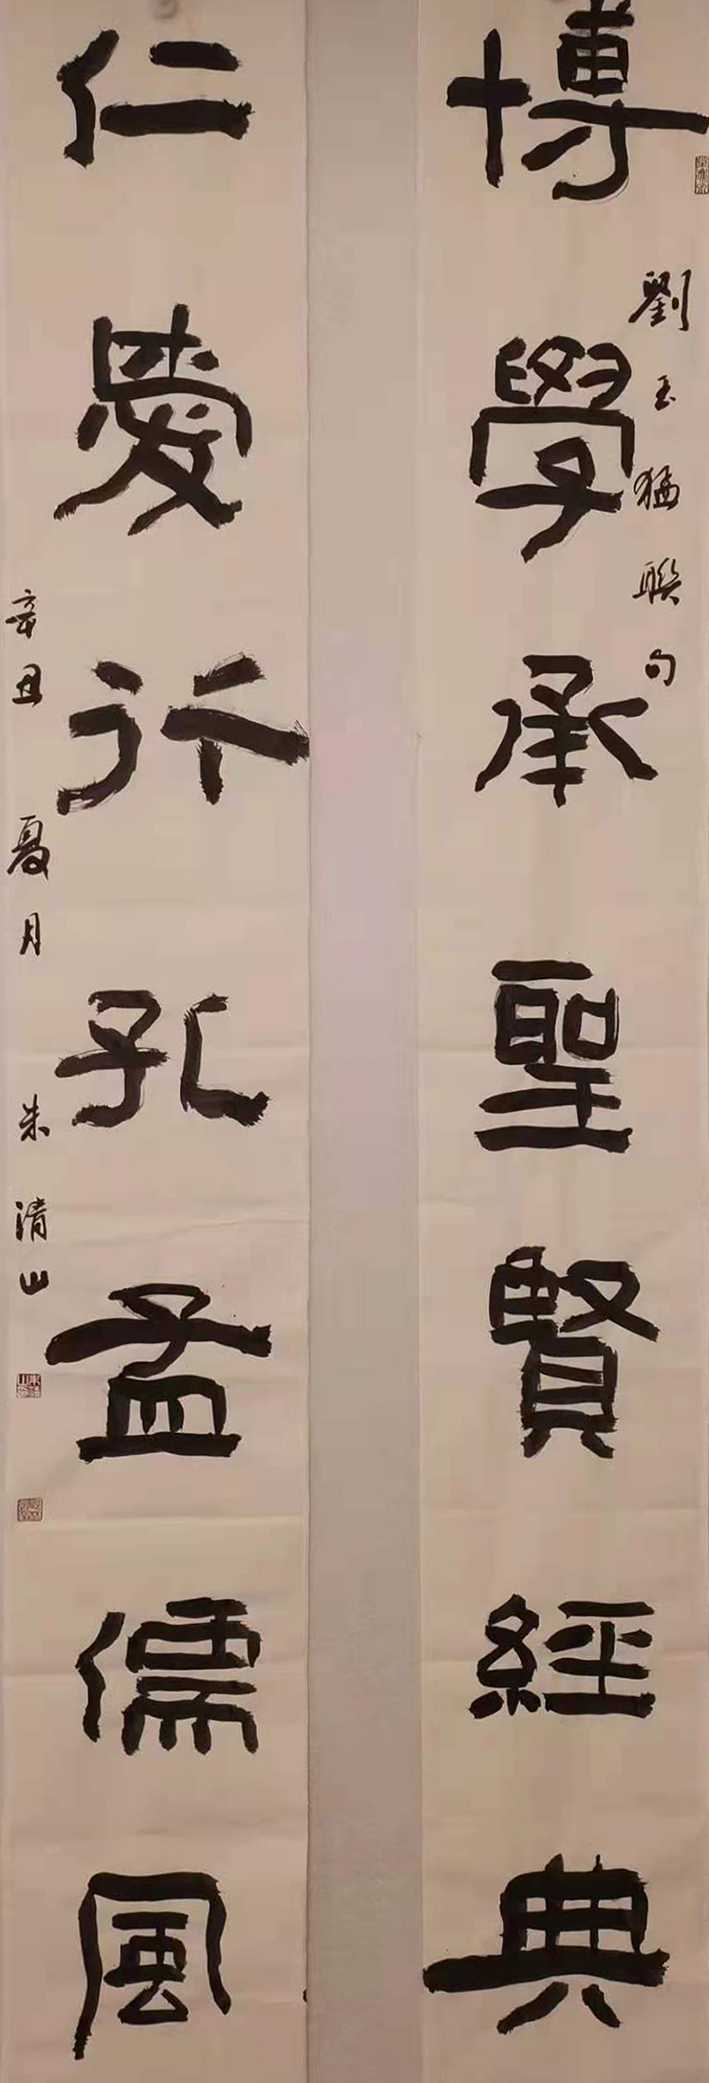 博學承聖賢經典
劉玉猛聯句
仁愛行孔孟儒風
辛丑夏月朱清山